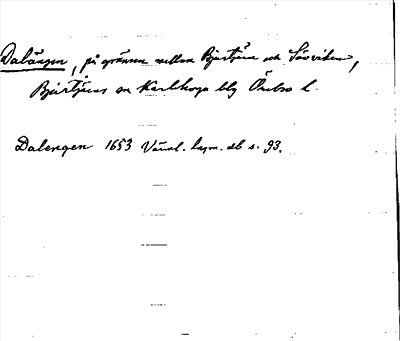 Dalängen, på gränsen mellan Bjurtjärn och Såviken,
Bjurtjärns sn Karlskoga blg Örebro l.
Dalengen 1653 Värml. lagm. db s. 93.